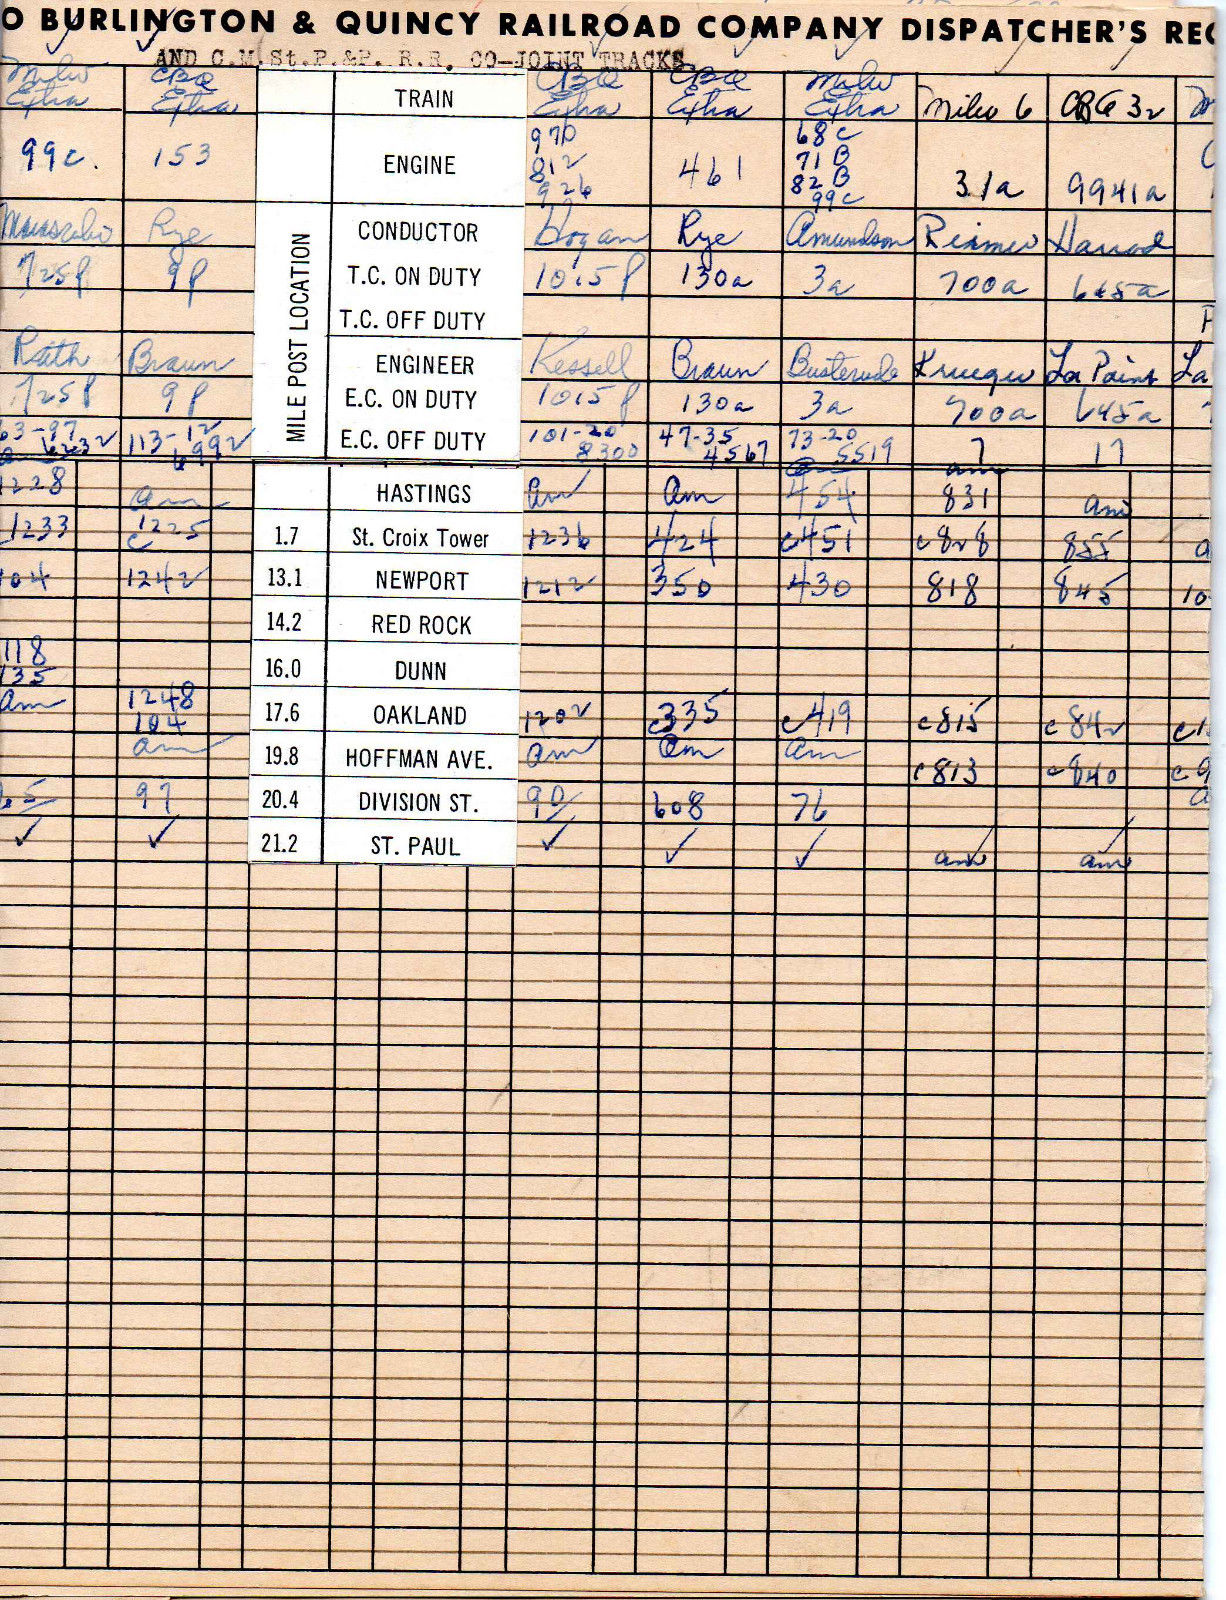 O BURLINGTON & QUINCY RAILROAD COMPANY DISPATCHER'S REC
AND C.M.St.P.&P. R.R. CO-JOINT TRACKS.
Milw CBQ CBQ CBQ Milw
Extra Extra TRAIN Extra Extra Extra Milw 6 CBQ 32
99c. 153 ENGINE 970 812 926 461 68c 71B 82B 99c 31a 9941a
Rye CONDUCTOR Hogan Rye Amundson Harrod
725P 9P T.C. ON DUTY 1015P 130a 3a 700a 645a
T.C. OFF DUTY
MILE POST LOCATION
Rath Braun ENGINEER Kessell Braun La Point La
725P 9P E.C. ON DUTY 1015P 130a 3a 700a 645a
63-97 113-12 E.C. OFF DUTY 101-20 47-35 73-20 7 17
6232 6992 8300 4567 5519
1228 am HASTINGS am am 454 am 831 am
1233 c1225 1.7 St. Croix Tower 1236 424 c451 c828 855
104 1242 13.1 NEWPORT 1212 350 430 818 845 10
14.2 RED ROCK
118
135 16.0 DUNN
am 1248 104 17.6 OAKLAND 1202 c335 c419 c815 c842 c1
am 19.8 HOFFMAN AVE. am am am c813 c840 c9
97 20.4 DIVISION ST. 90 608 76
✓ ✓ 21.2 ST. PAUL ✓ ✓ ✓ am am